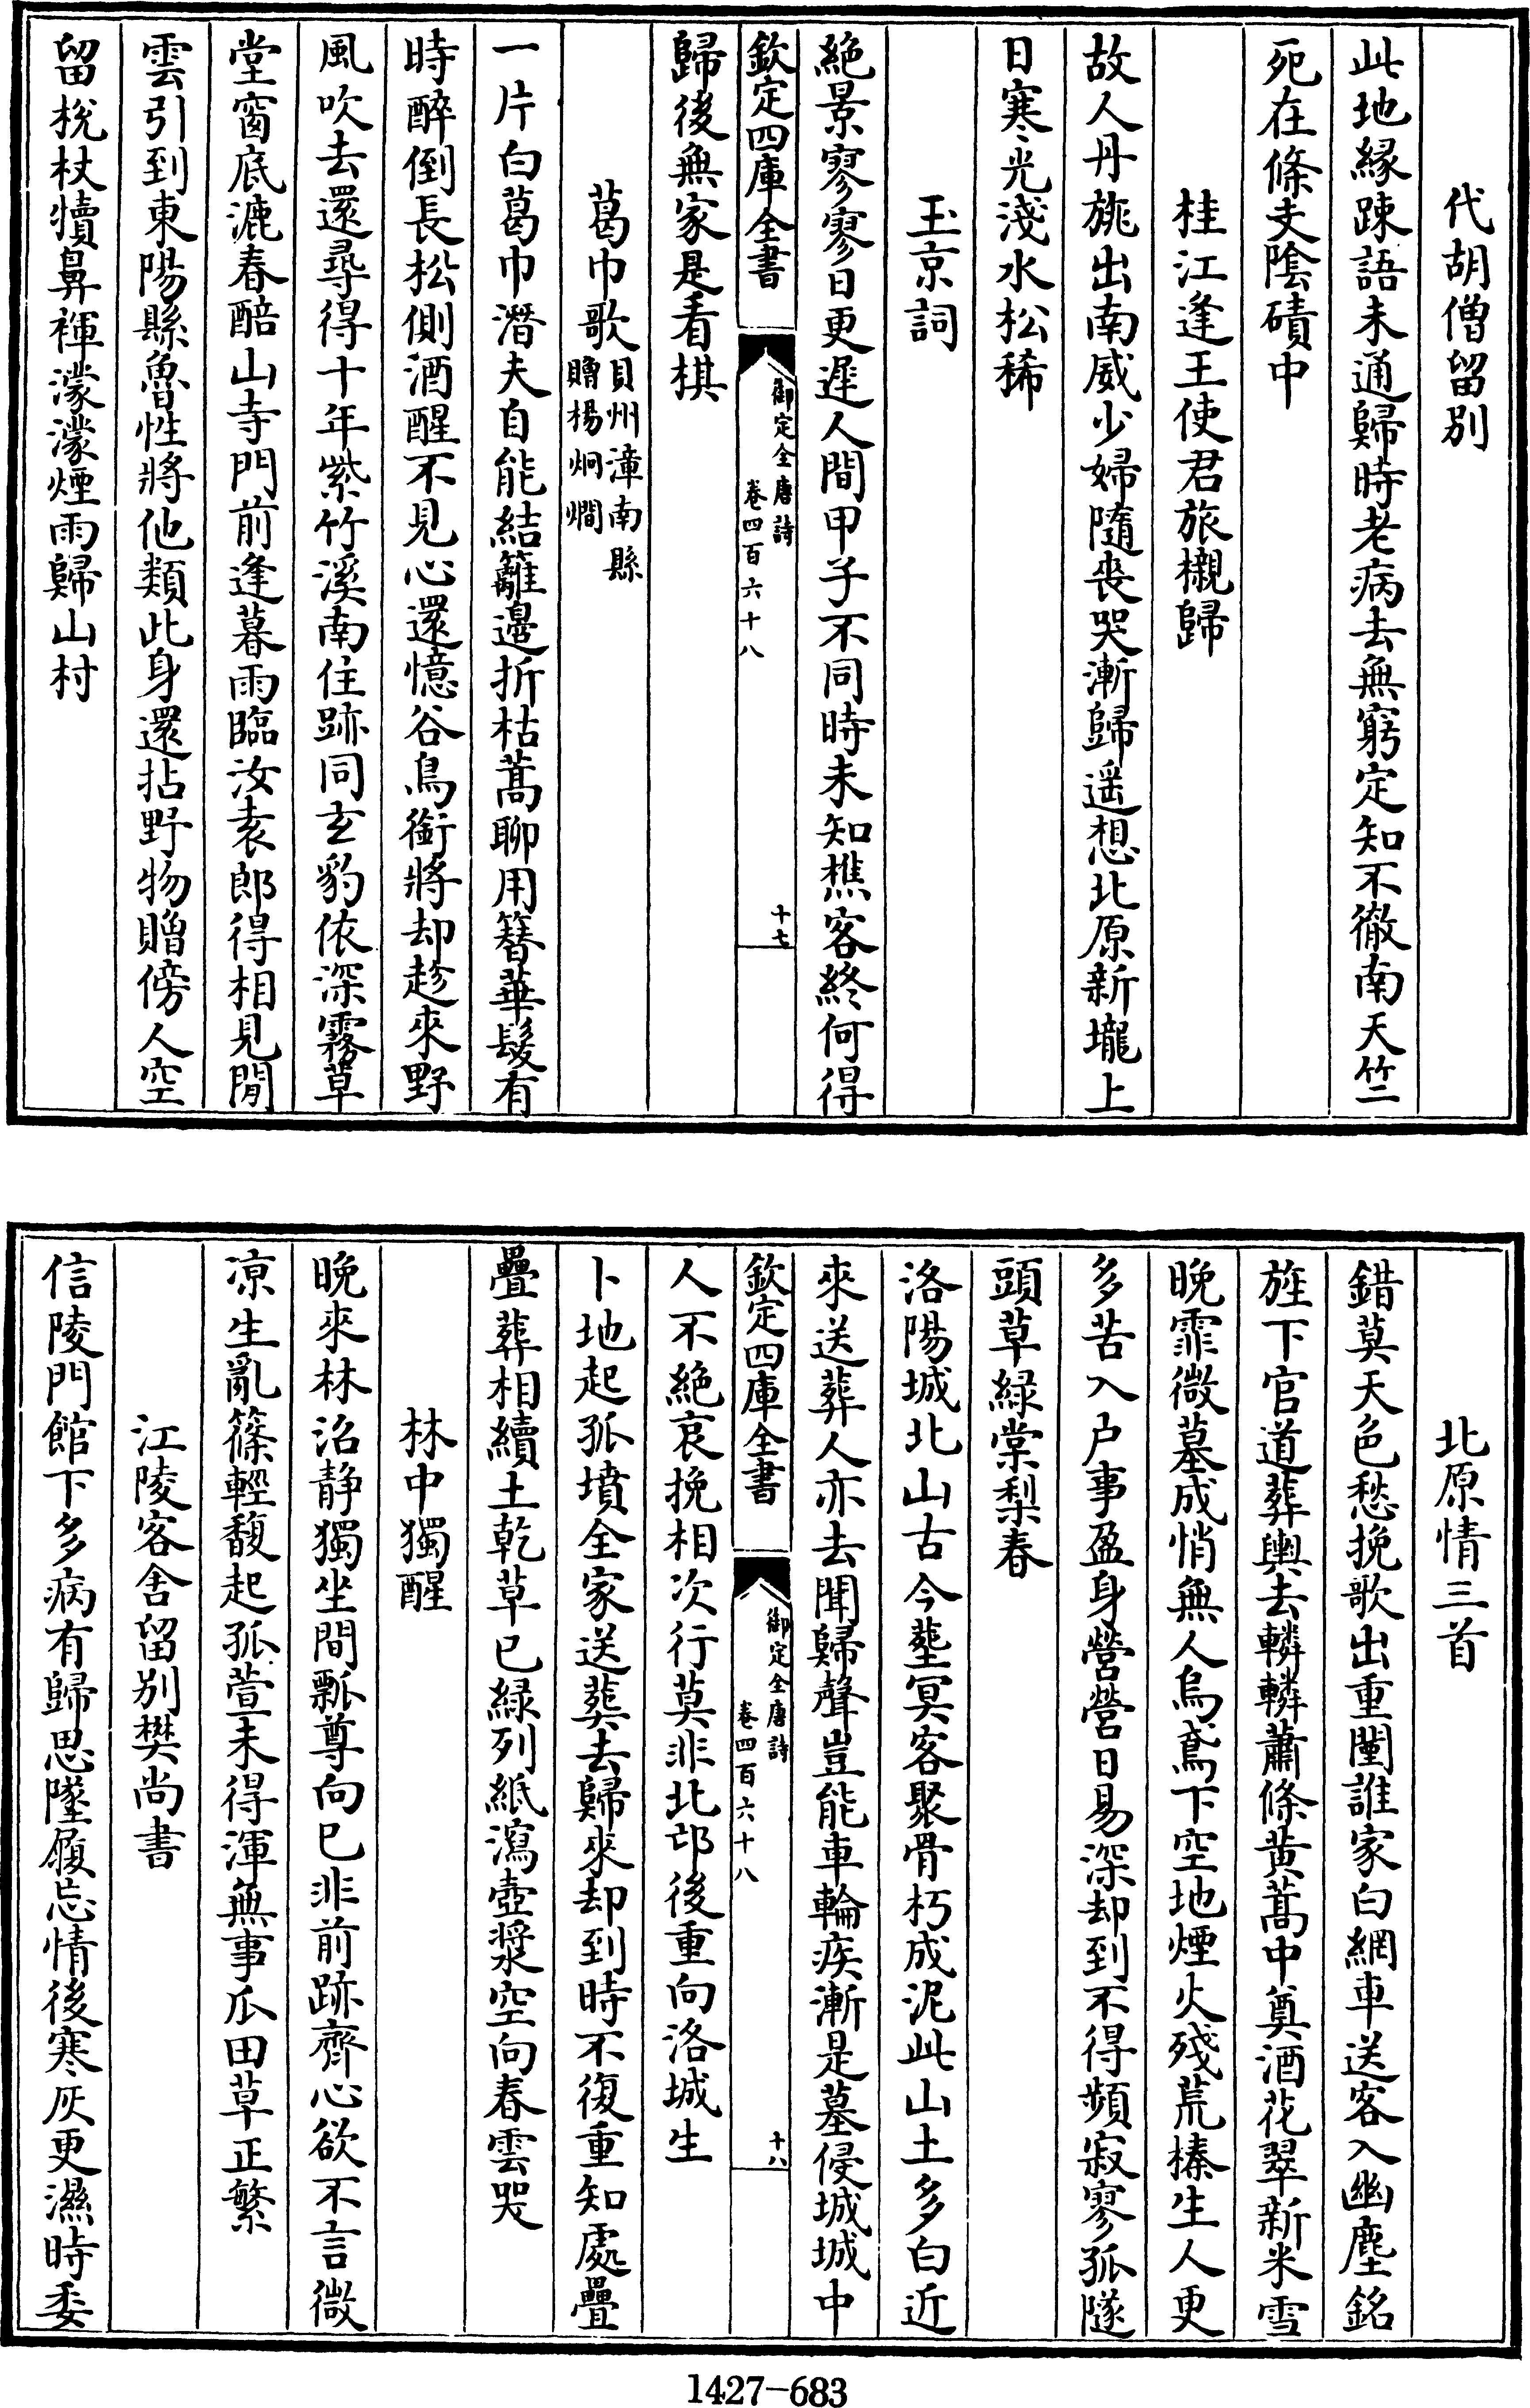 代胡僧留别
此地緣踈語未通歸時老病去無窮定知不徹南天竺
死在條支陰磧中
桂江逢王使君旅櫬歸
故人丹旐出南威少婦隨喪哭漸歸遥想北原新壠上
日寒光淺水松稀
玉京詞
絶景寥寥日更遲人間甲子不同時未知樵客終何得
欽定四庫全書
御定全唐詩
卷四百六十八
十七
歸後無家是看棋
葛巾歌貝州漳南縣
贈楊炯燗
一片白葛巾潛夫自能結籬邉折枯蒿聊用簪華髮有
時醉倒長松側酒醒不見心還憶谷鳥銜將却趁來野
風吹去還尋得十年紫竹溪南住跡同𤣥豹依深霧草
堂窗底漉春醅山寺門前逢暮雨臨汝袁郎得相見閒
雲引到東陽縣魯性將他類此身還拈野物贈傍人空
留棁杖犢鼻褌濛濛煙雨歸山村
北原情三首
錯莫天色愁挽歌出重闉誰家白網車送客入幽塵銘
旌下官道葬輿去轔轔蕭條黄蒿中奠酒花翠新米雪
晚霏微墓成悄無人烏鳶下空地煙火殘荒榛生人更
多苦入户事盈身營營日易深却到不得頻寂寥孤隧
頭草緑棠梨春
洛陽城北山古今塟冥客聚骨朽成泥此山土多白近
來送葬人亦去聞歸聲豈能車輪疾漸是墓侵城城中
欽定四庫全書
御定全唐詩
卷四百六十八
十八
人不絶哀挽相次行莫非北邙後重向洛城生
卜地起孤墳全家送葬去歸來却到時不復重知處疊
疊葬相續土乾草已緑列紙瀉壺漿空向春雲哭
林中獨醒
晚來林沼静獨坐間瓢尊向已非前跡齊心欲不言微
凉生亂篠輕馥起孤萱未得渾無事瓜田草正繁
江陵客舍留别樊尚書
信陵門館下多病有歸思墜履忘情後寒灰更濕時委
1427-683